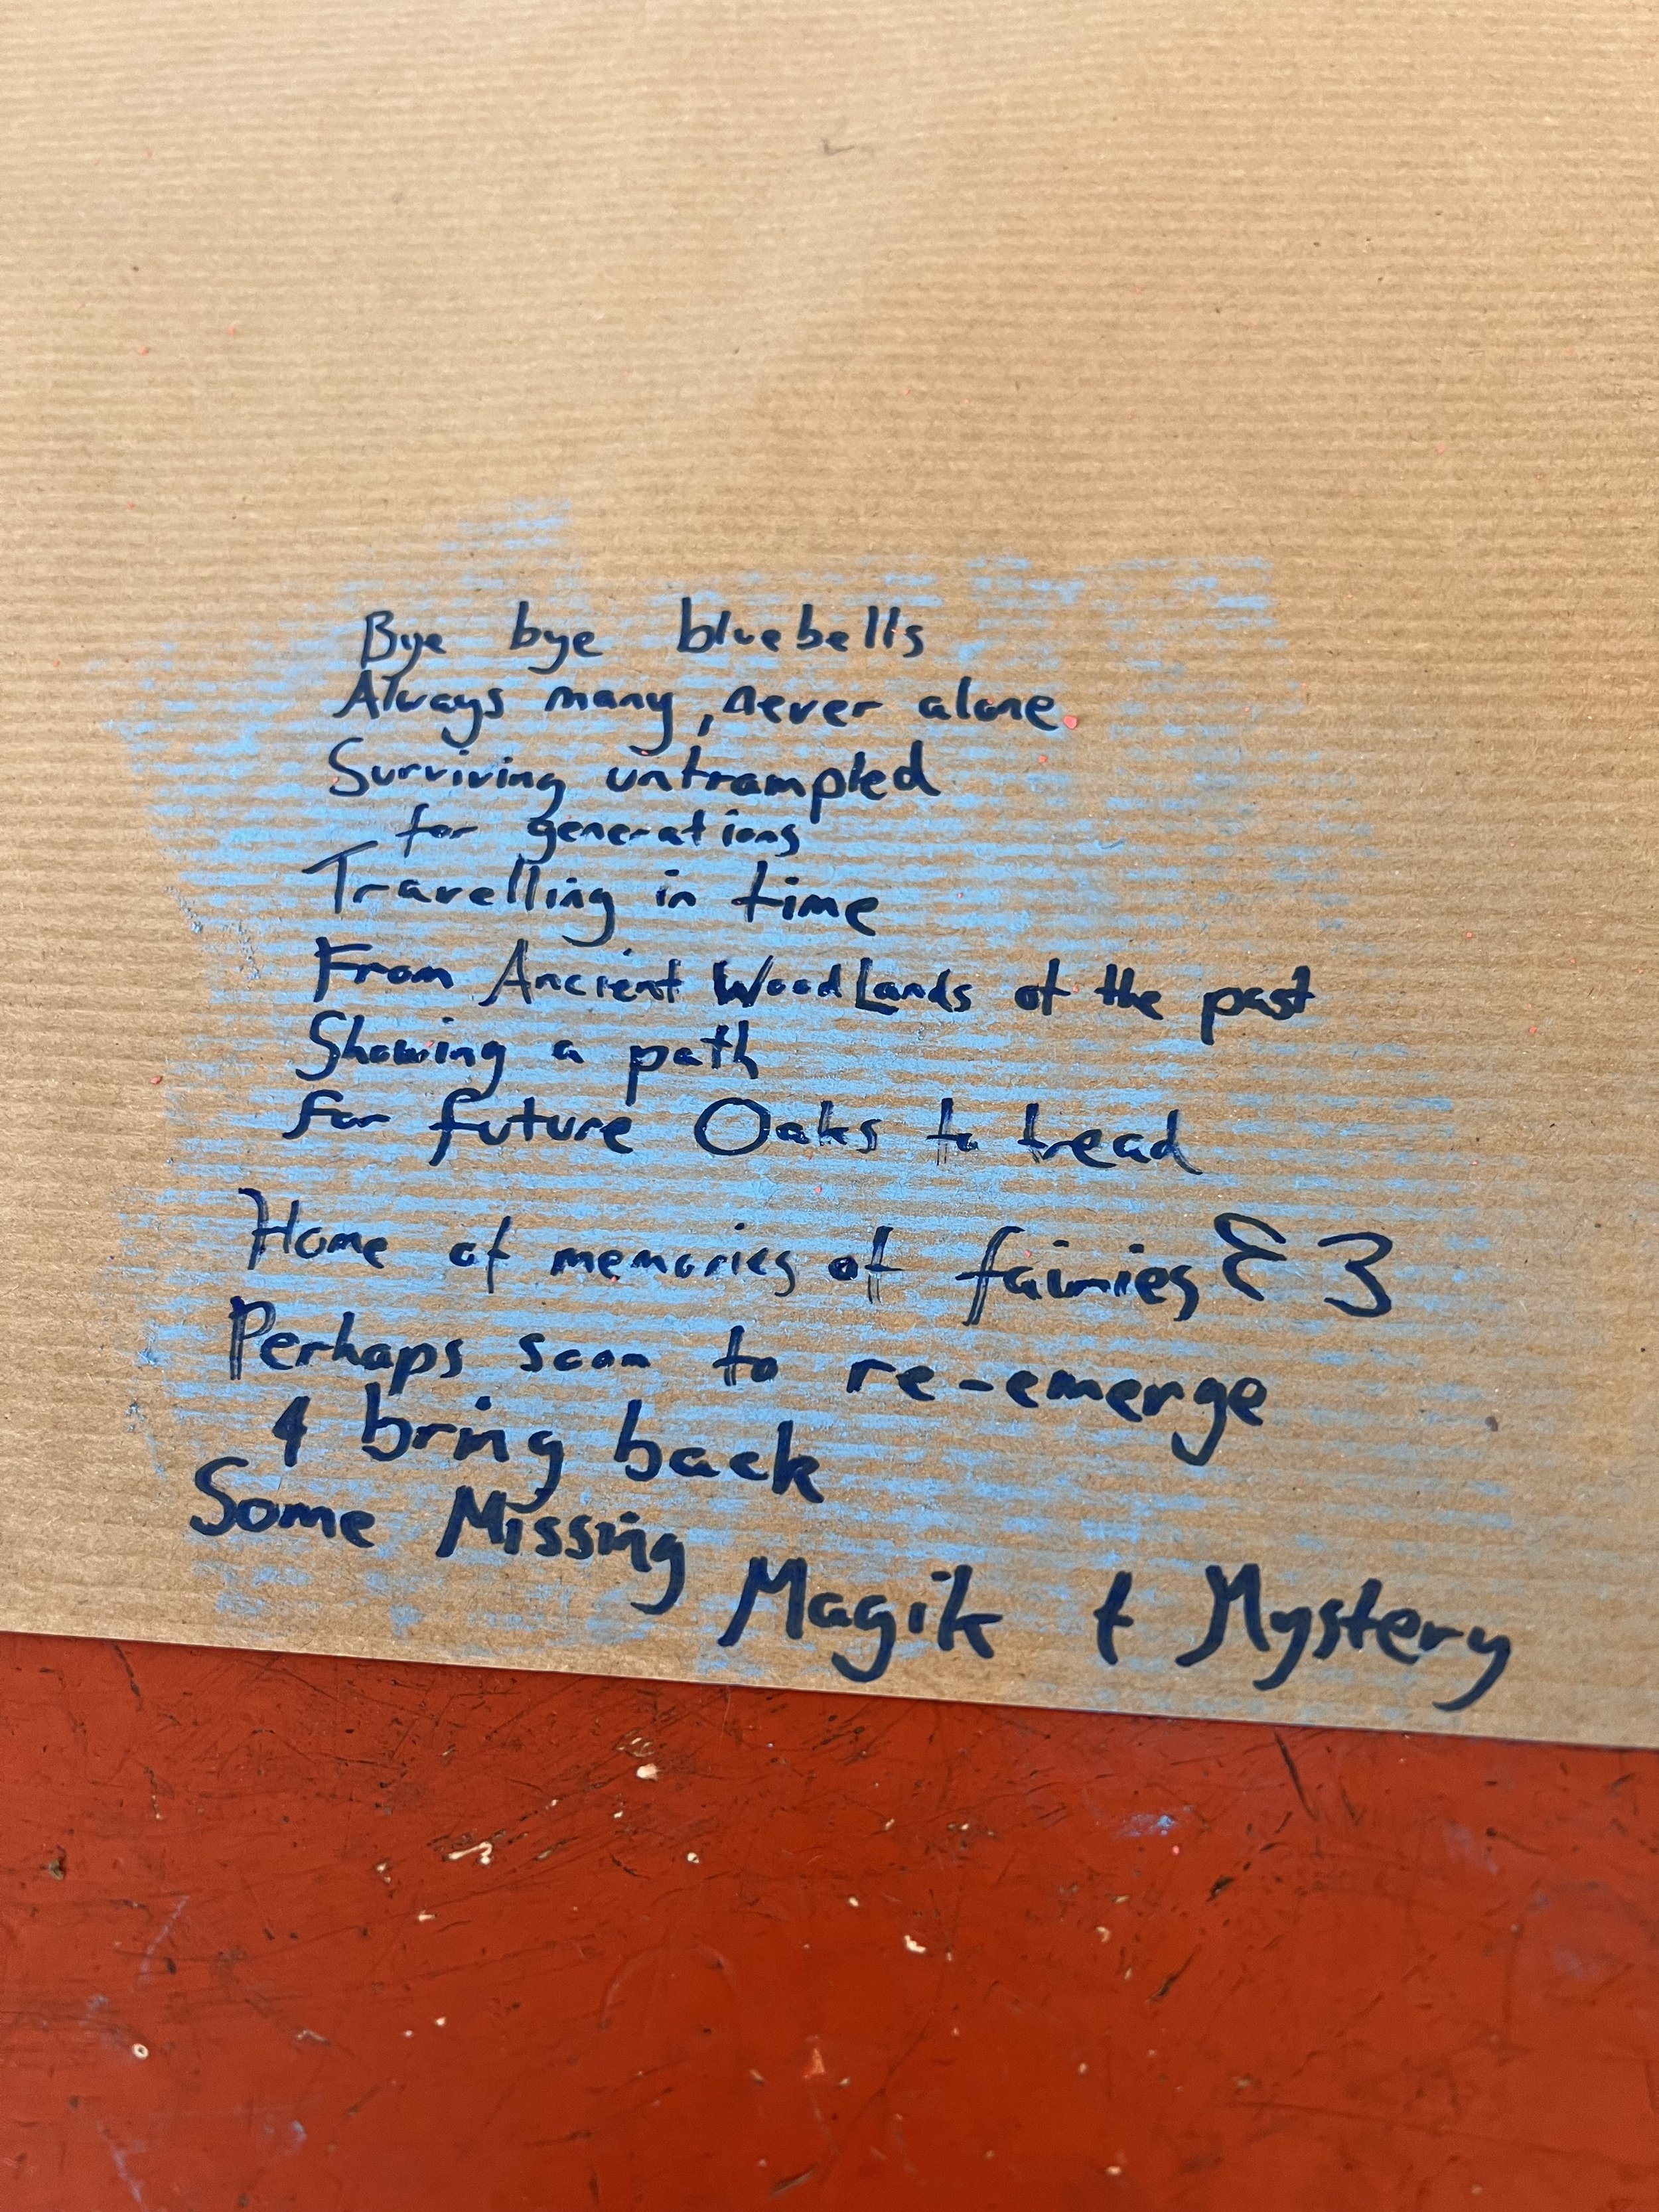 Bye bye bluebells
Always many, never alone
Surviving untrampled
for generations
Travelling in time
From Ancient WoodLands of the past
Showing a path
for future Oaks to tread
Home of memories of fairies
Perhaps soon to re-emerge
& bring back
Some Missing
Magik & Mystery